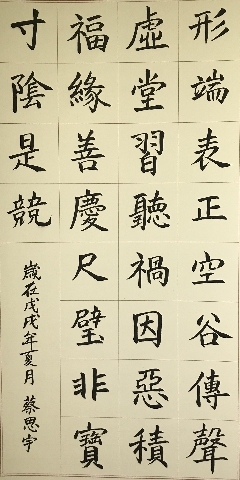 形端表正空谷傳聲
虛堂習聽禍因惡積
福緣善慶尺璧非寶
寸陰是競
歲在戊戌年夏月 蔡思宇